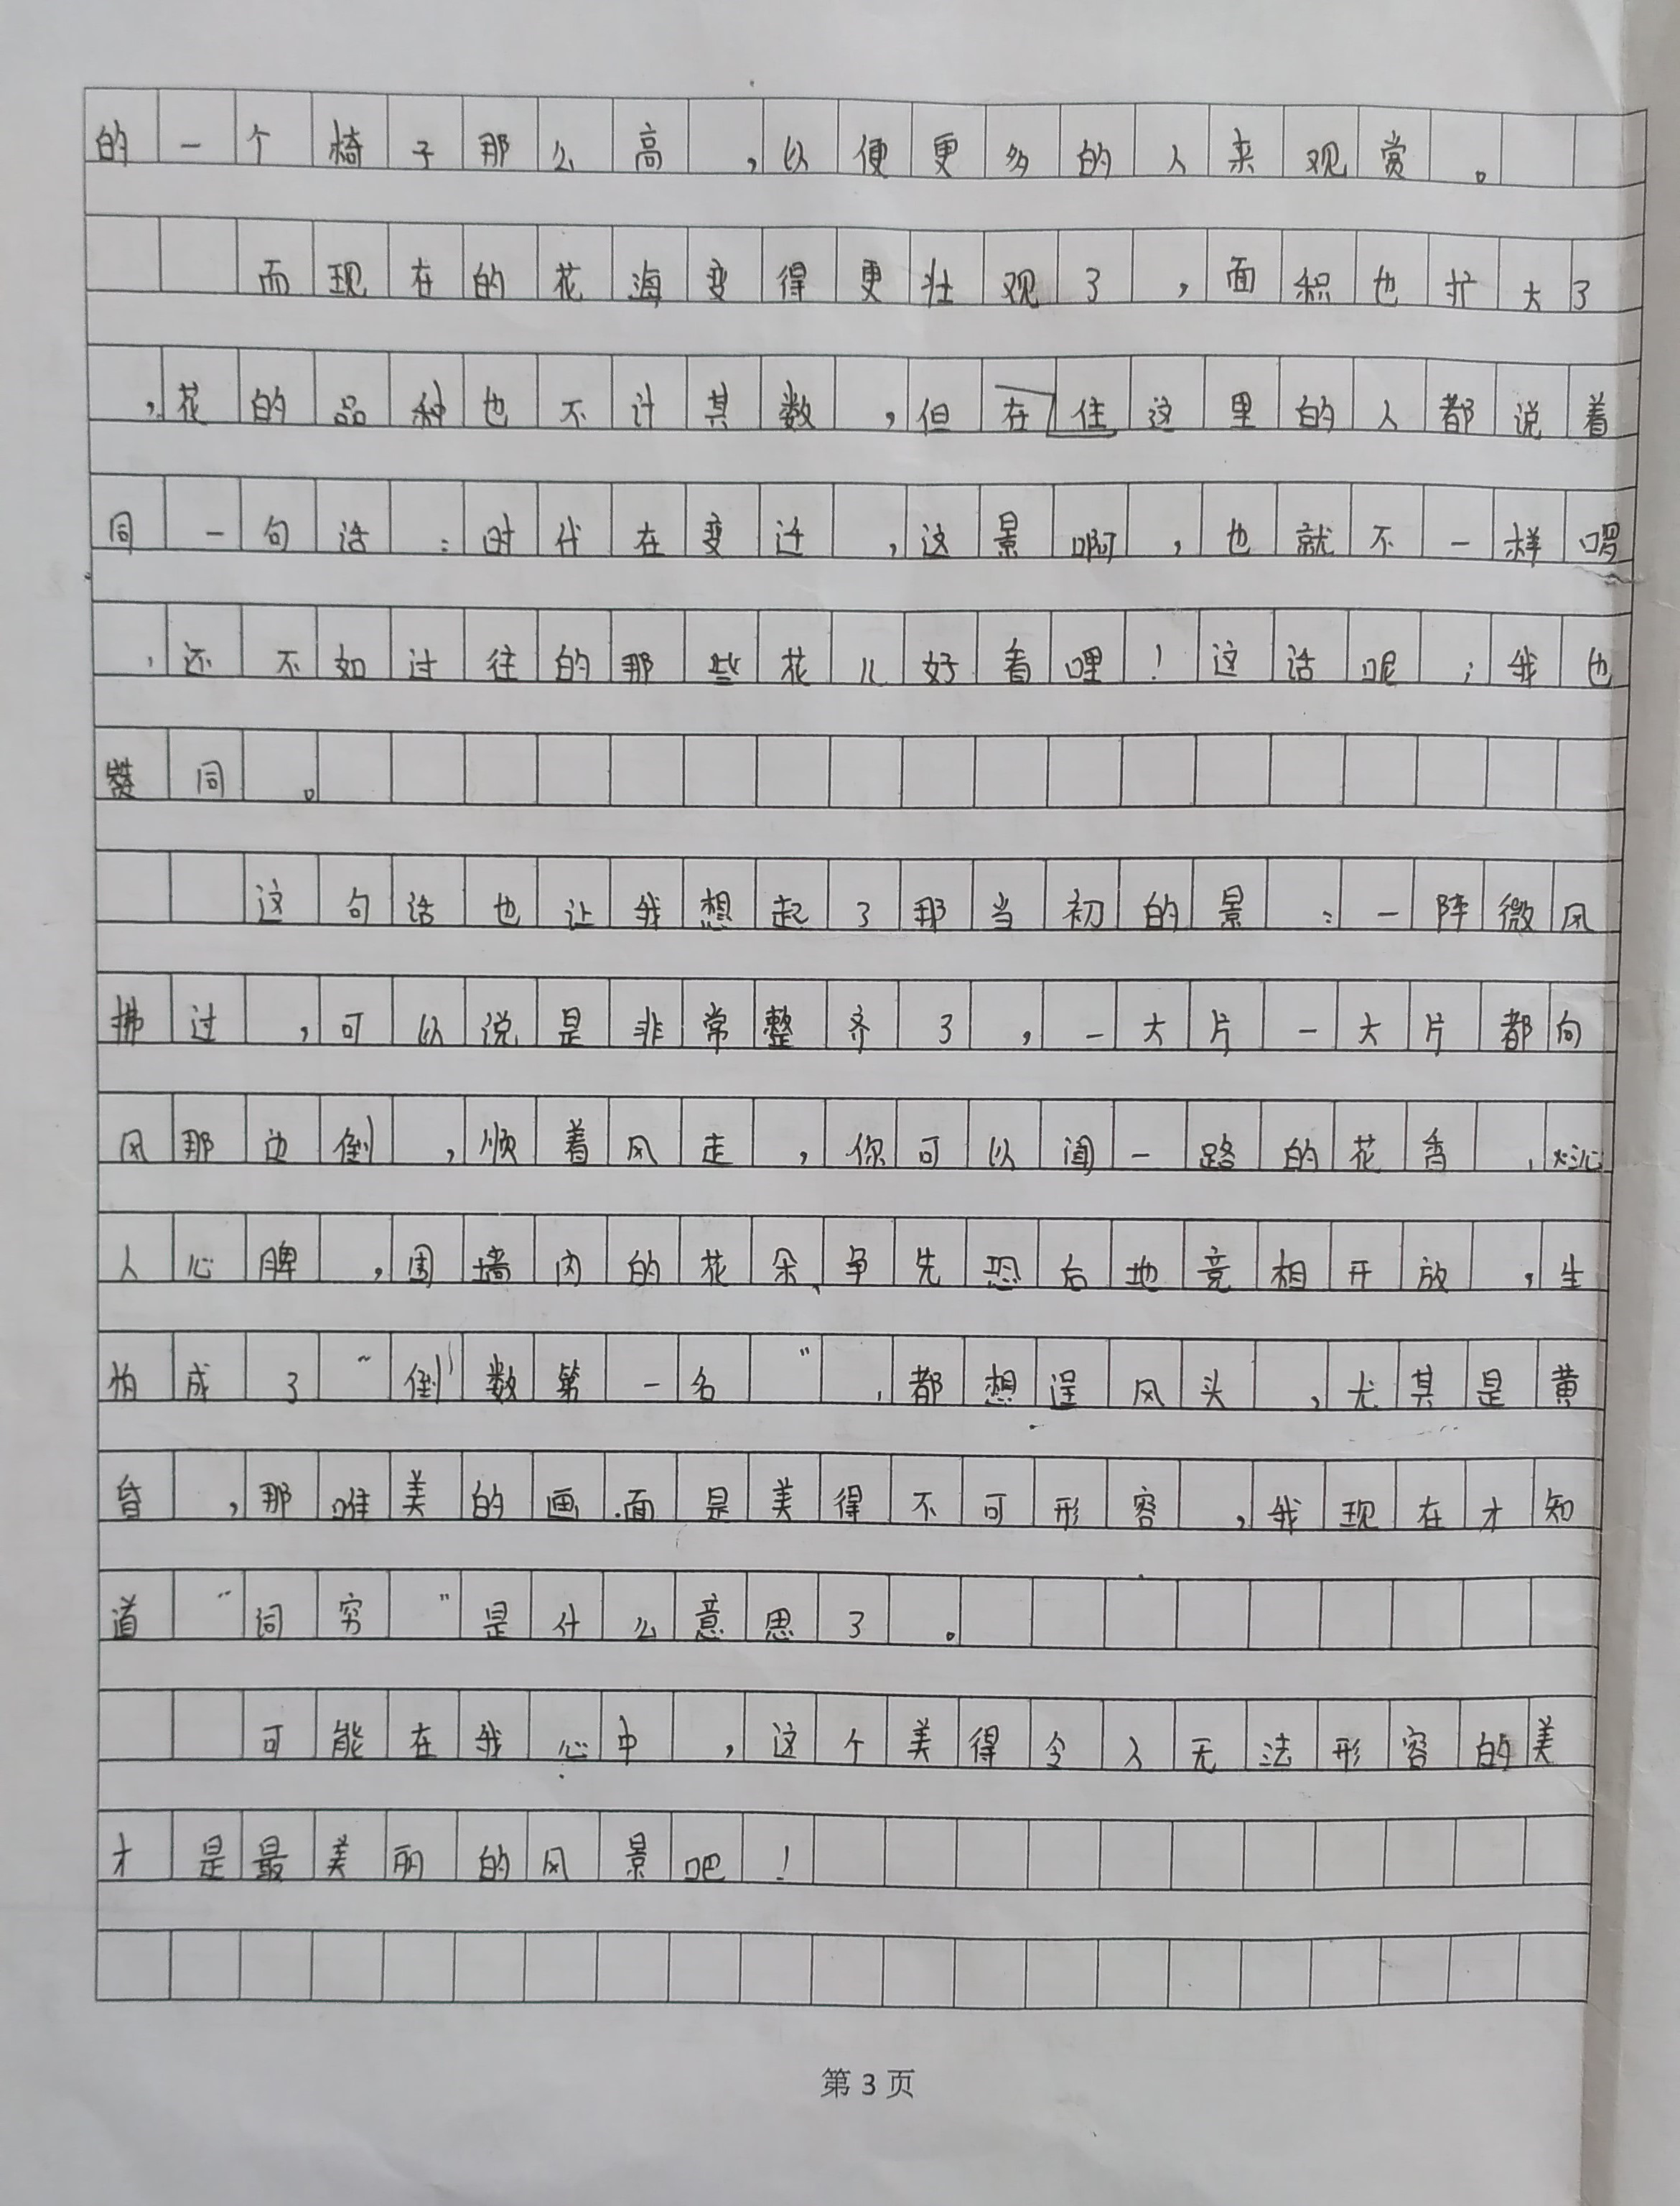 的一个椅子那么高，以便更多的人来观赏。
而现在的花海变得更壮观了，面积也扩大了
，花的品种也不计其数，但在住这里的人都说着
同一句话：时代在变迁，这景啊，也就不一样啰
，还不如过往的那些花儿好看哩！这话呢，我也
赞同。
这句话也让我想起了那当初的景：一阵微风
拂过，可以说是非常整齐了，一大片一大片都向
风那边倒，顺着风走，你可以闻一路的花香，沁
人心脾，围墙内的花朵争先恐后地竞相开放，生
怕成了“倒数第一名”，都想逞风头，尤其是黄
昏，那唯美的画面是美得不可形容，我现在才知
道“词穷”是什么意思了。
可能在我心中，这个美得令人无法形容的美
才是最美丽的风景吧！
第3页